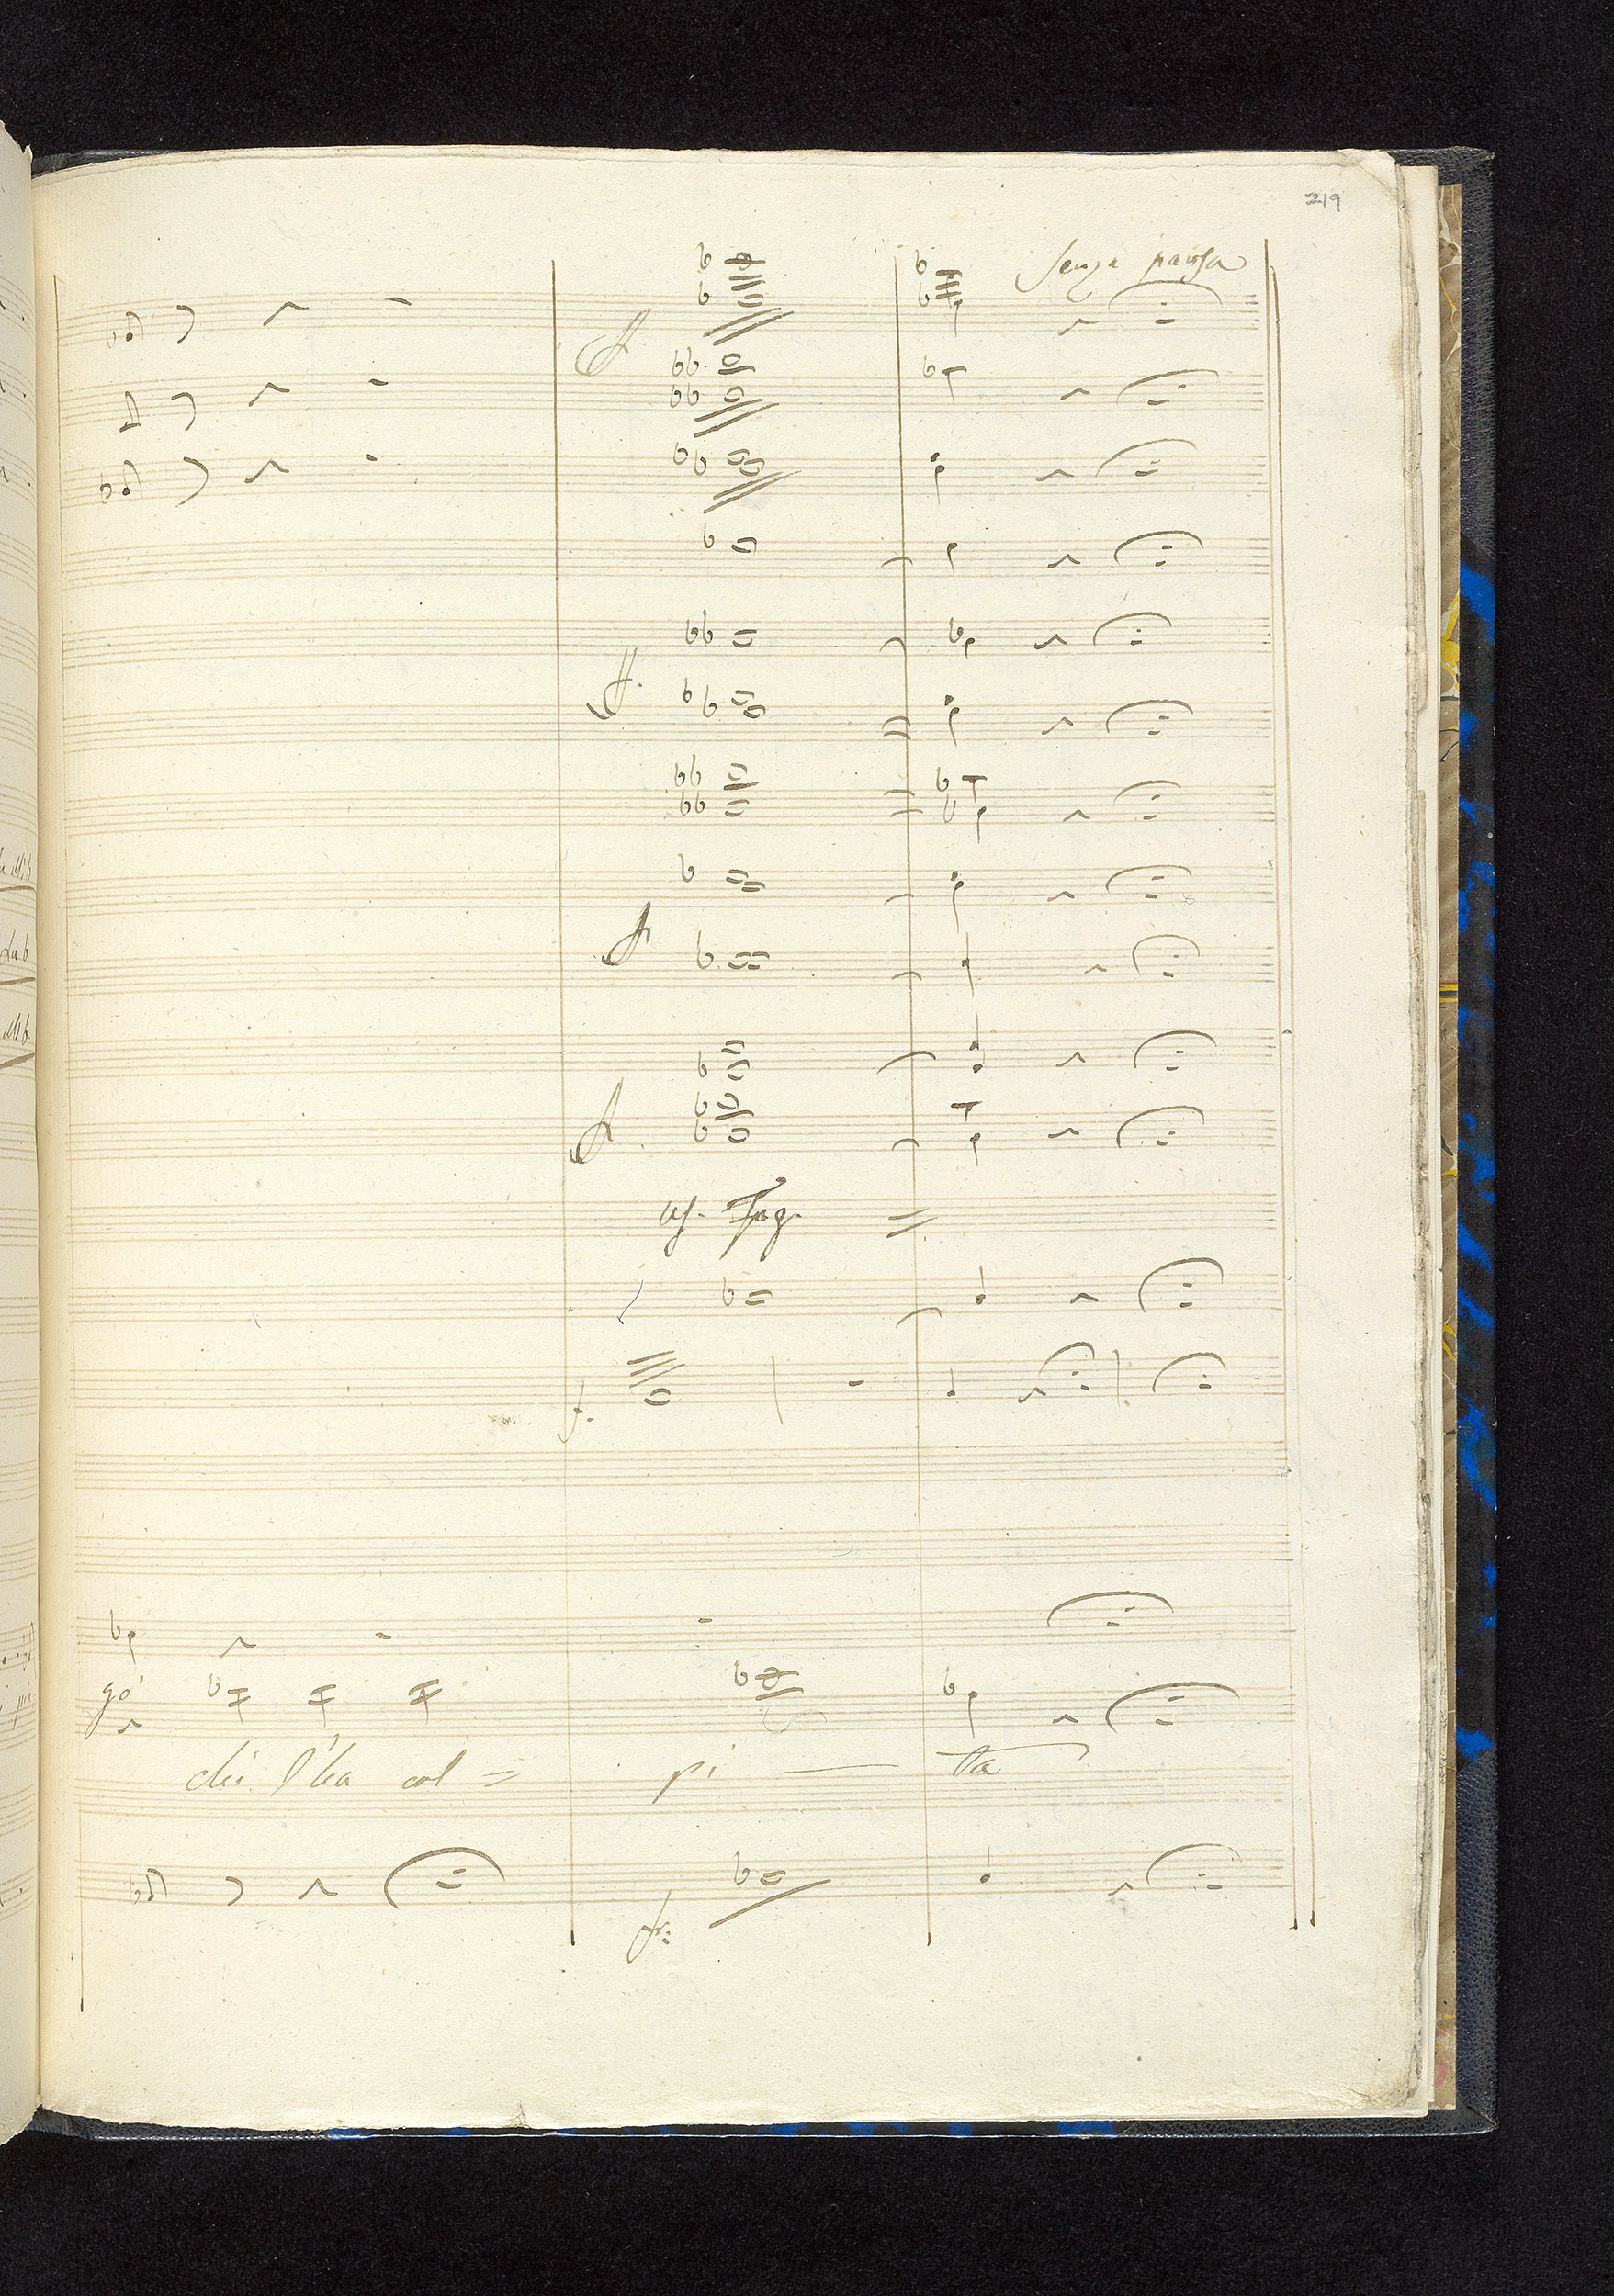 219
Senza pausa
ff
ff.
ff
ff.
col. Fag.
f.
gò
chi l'ha col =
pi — ta
ff: